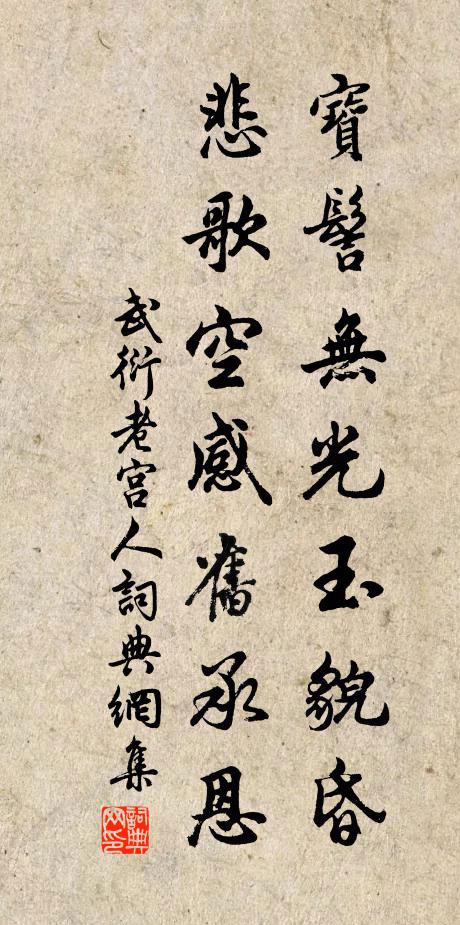 寶髻無光玉貌昏
悲歌空感舊承恩
武衍老宮人詞典網集
詞典网印